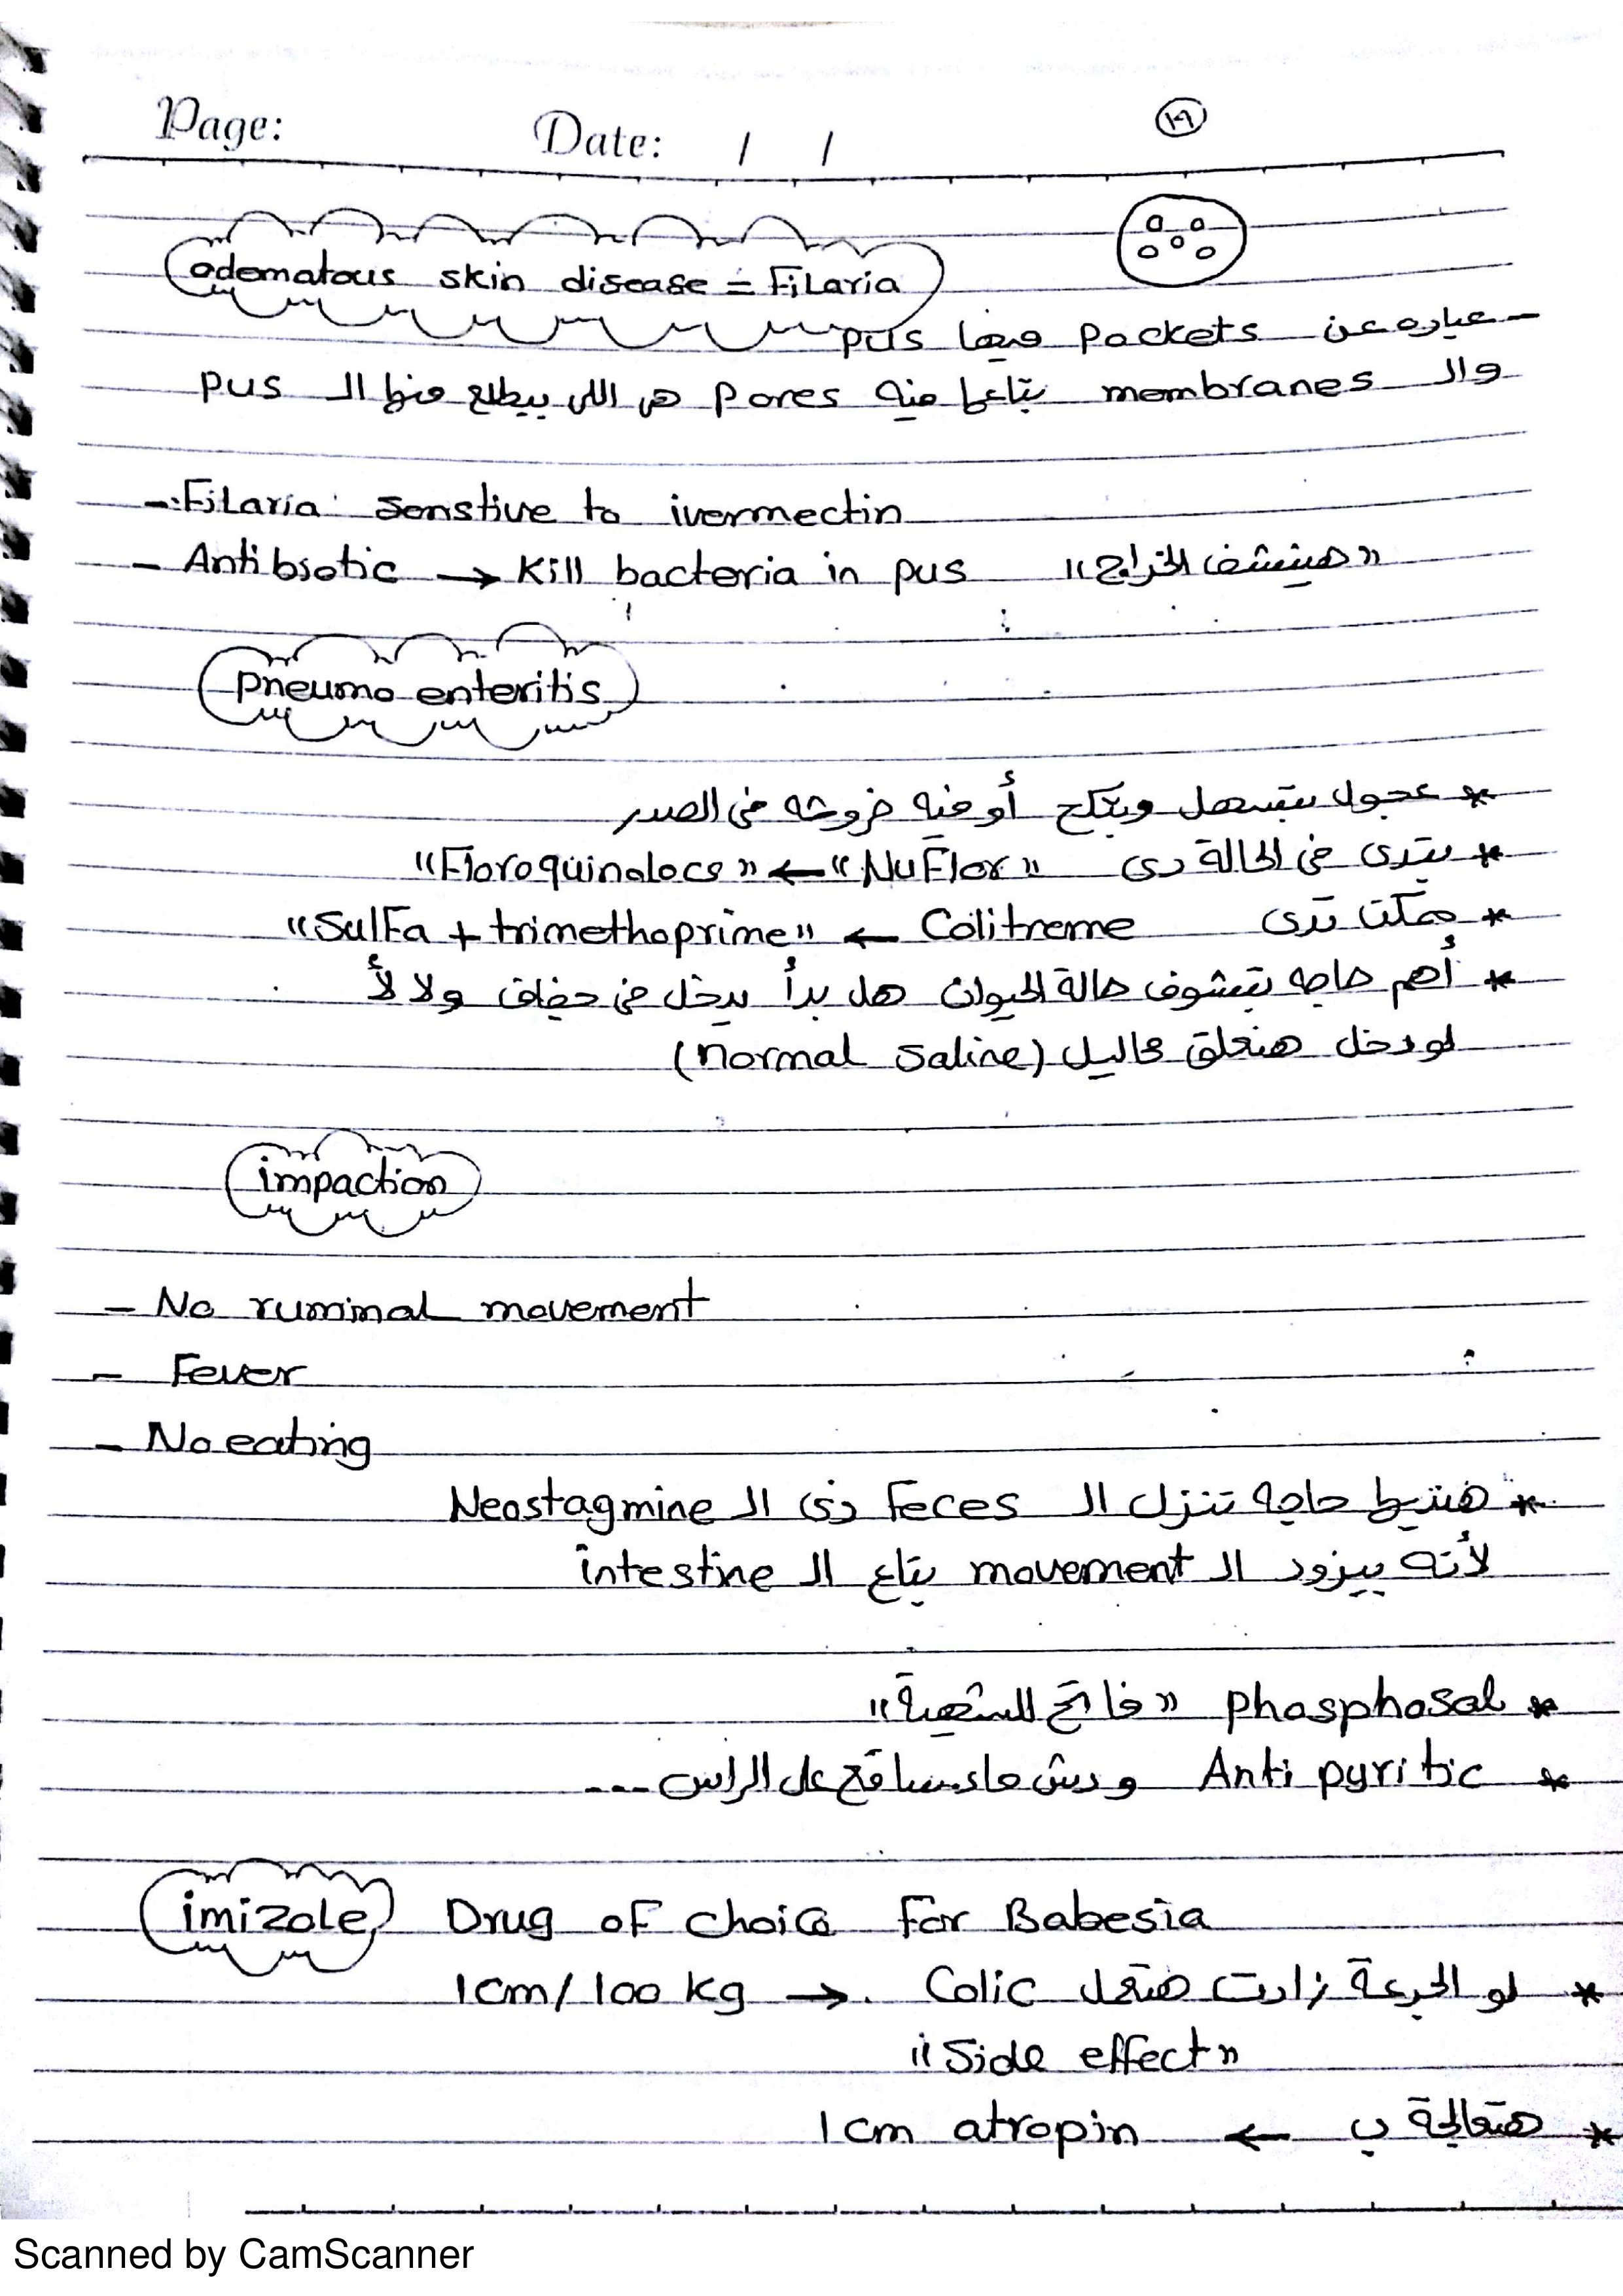 Page:
Date: / /
١٩
odematous skin disease = Filaria
- عباره عن Pockets فيها pus
والـ membranes بتاعها فيه Pores هي اللي بيطلع منها الـ pus
- Filaria senstive to ivermectin
- Antibiotic → Kill bacteria in pus "هينشف الخراج"
Pneumo enteritis
* عجول بتسهل وبتكح أو فيه خروشه في الصدر
* بتدى في الحالة دى "NuFlor" ← "Floroquinolocs"
* ممكن تدى Colitreme ← "Sulfa + trimethoprime"
* أهم حاجه تشوف حالة الحيوان هل بدأ يدخل في جفاف ولا لأ
لو دخل هنعلق محاليل (normal saline)
impaction
- No ruminal movement
- Fever
- No eating
* هنديها حاجه تنزل الـ Feces زى الـ Neostagmine
لأنه بيزود الـ movement بتاع الـ intestine
* phosphosal "فاتح للشهية"
* Anti pyritic ودش ماء ساقع على الراس ---
imizole Drug of choice For Babesia
* لو الجرعة زادت هتعمل Colic ← 1cm/100 kg
"Side effect"
* هتعالجة ب ← 1cm atropin
Scanned by CamScanner